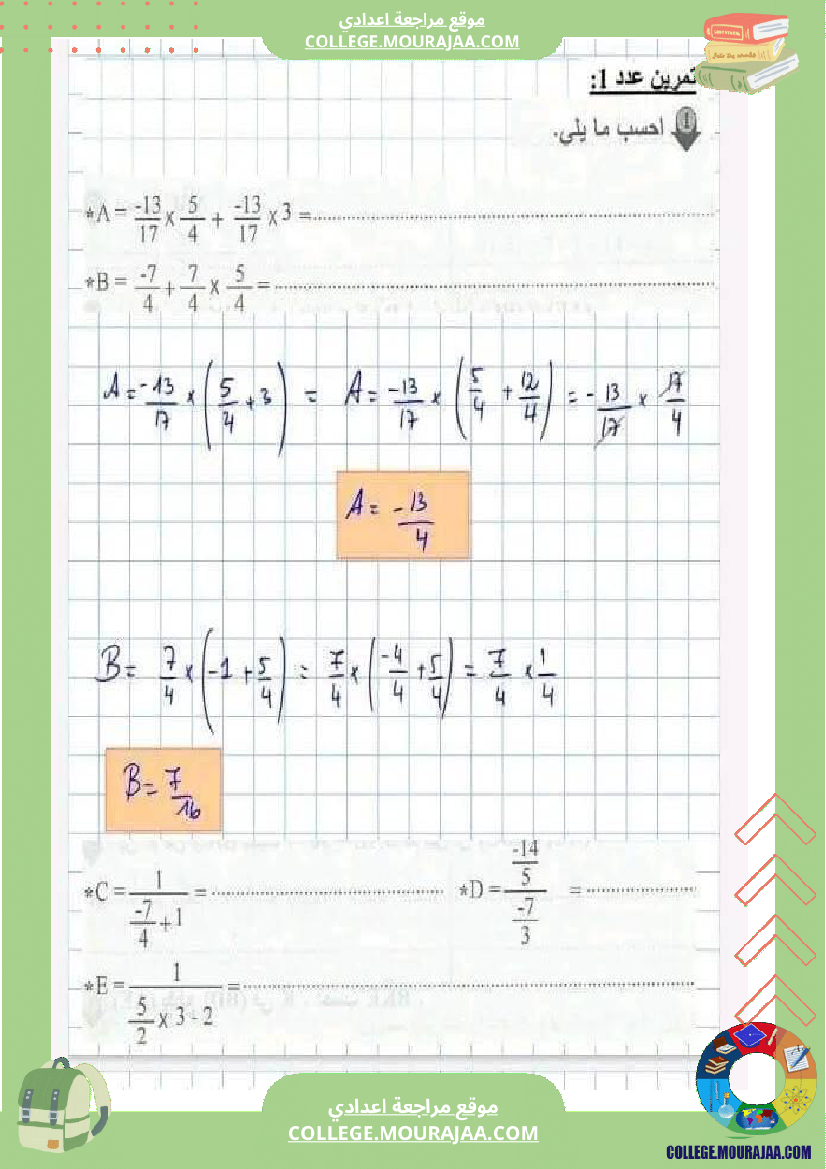 موقع مراجعة اعدادي
COLLEGE.MOURAJAA.COM
تمرين عدد 1:
I احسب ما يلي.
*A = -13/17 x 5/4 + -13/17 x 3 = ........
*B = -7/4 + 7/4 x 5/4 = ........
A = -13/17 x (5/4 + 3) = A = -13/17 x (5/4 + 12/4) = -13/17 x 17/4
A = -13/4
B = 7/4 x (-1 + 5/4) = 7/4 x (-4/4 + 5/4) = 7/4 x 1/4
B = 7/16
*C = 1/(-7/4 + 1) = ........ *D = (-14/5)/(-7/3) = ........
*E = 1/(5/2 x 3 - 2) = ........
موقع مراجعة اعدادي
COLLEGE.MOURAJAA.COM
COLLEGE.MOURAJAA.COM